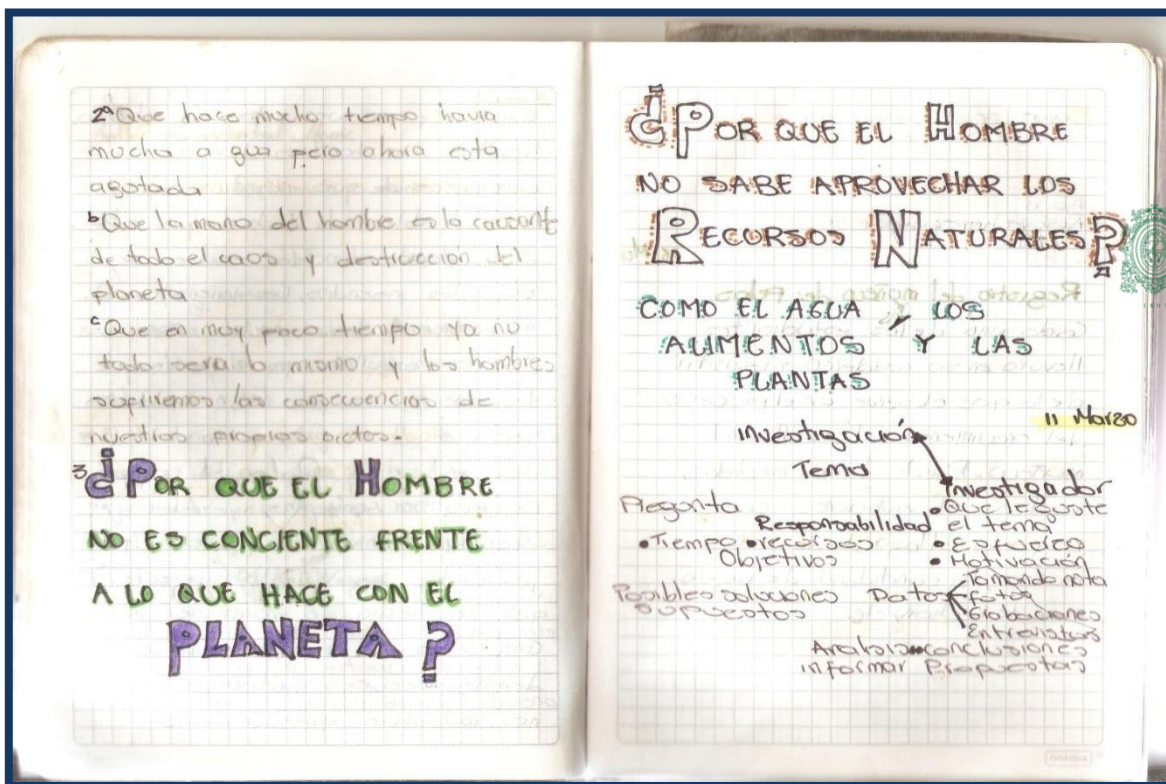 2ª Que hace mucho tiempo havia
mucha a gua pero ahora esta
agotada
b Que la mano del hombre es la causante
de todo el caos y destruccion del
planeta
c Que en muy poco tiempo ya no
todo sera lo mismo y los hombres
sufriremos las consecuencias de
nuestros propios actos.
3 ¿POR QUE EL HOMBRE
NO ES CONCIENTE FRENTE
A LO QUE HACE CON EL
PLANETA?
¿POR QUE EL HOMBRE
NO SABE APROVECHAR LOS
RECURSOS NATURALES?
COMO EL AGUA, LOS
ALIMENTOS Y LAS
PLANTAS
11 Marzo
Investigación
Tema
Investigador
Pregunta
• Que le guste
Responsabilidad el tema
• Tiempo • recursos • Esfuerzo
Objetivos • Motivación
Tomando nota
Posibles soluciones Datos fotos
supuestos Grabaciones
Entrevistas
Analisis conclusiones
informar Propuestas
norma